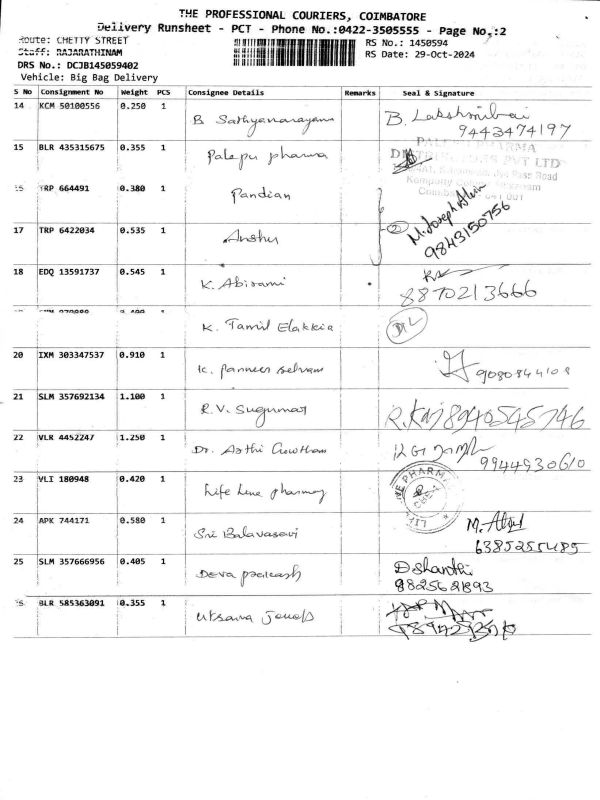 THE PROFESSIONAL COURIERS, COIMBATORE
Delivery Runsheet - PCT - Phone No.:0422-3505555 - Page No.:2
Route: CHETTY STREET
RS No.: 1450594
Staff: RAJARATHINAM
RS Date: 29-Oct-2024
DRS No.: DCJB145059402
Vehicle: Big Bag Delivery
S No Consignment No Weight PCS Consignee Details Remarks Seal & Signature
14 KCM 50100556 0.250 1 B Sathyanarayana B. Lakshmibai
9443474197
15 BLR 435315675 0.355 1 Palepu pharma PALEPU PHARMA
DISTRIBUTORS PVT LTD
TRP 664491 0.380 1 Pandian
17 TRP 6422034 0.535 1 Anshu 2 M. Joseph Alwin
9843150756
18 EDQ 13591737 0.545 1 K. Abirami
8870213666
K. Tamil Elakkia D/L
20 IXM 303347537 0.910 1 K. panneer selvam
9080844108
21 SLM 357692134 1.100 1 R.V. Sugumar R.Kaj 8940545746
22 VLR 4452247 1.250 1 Dr. Aathi Gowtham
9944930610
23 VLI 180948 0.420 1 Life Line pharmacy
24 APK 744171 0.580 1 Sri Balavasavi
6385255485
25 SLM 357666956 0.405 1 Deva prakash D Shanthi
9825621893
BLR 585363091 0.355 1 Utsava